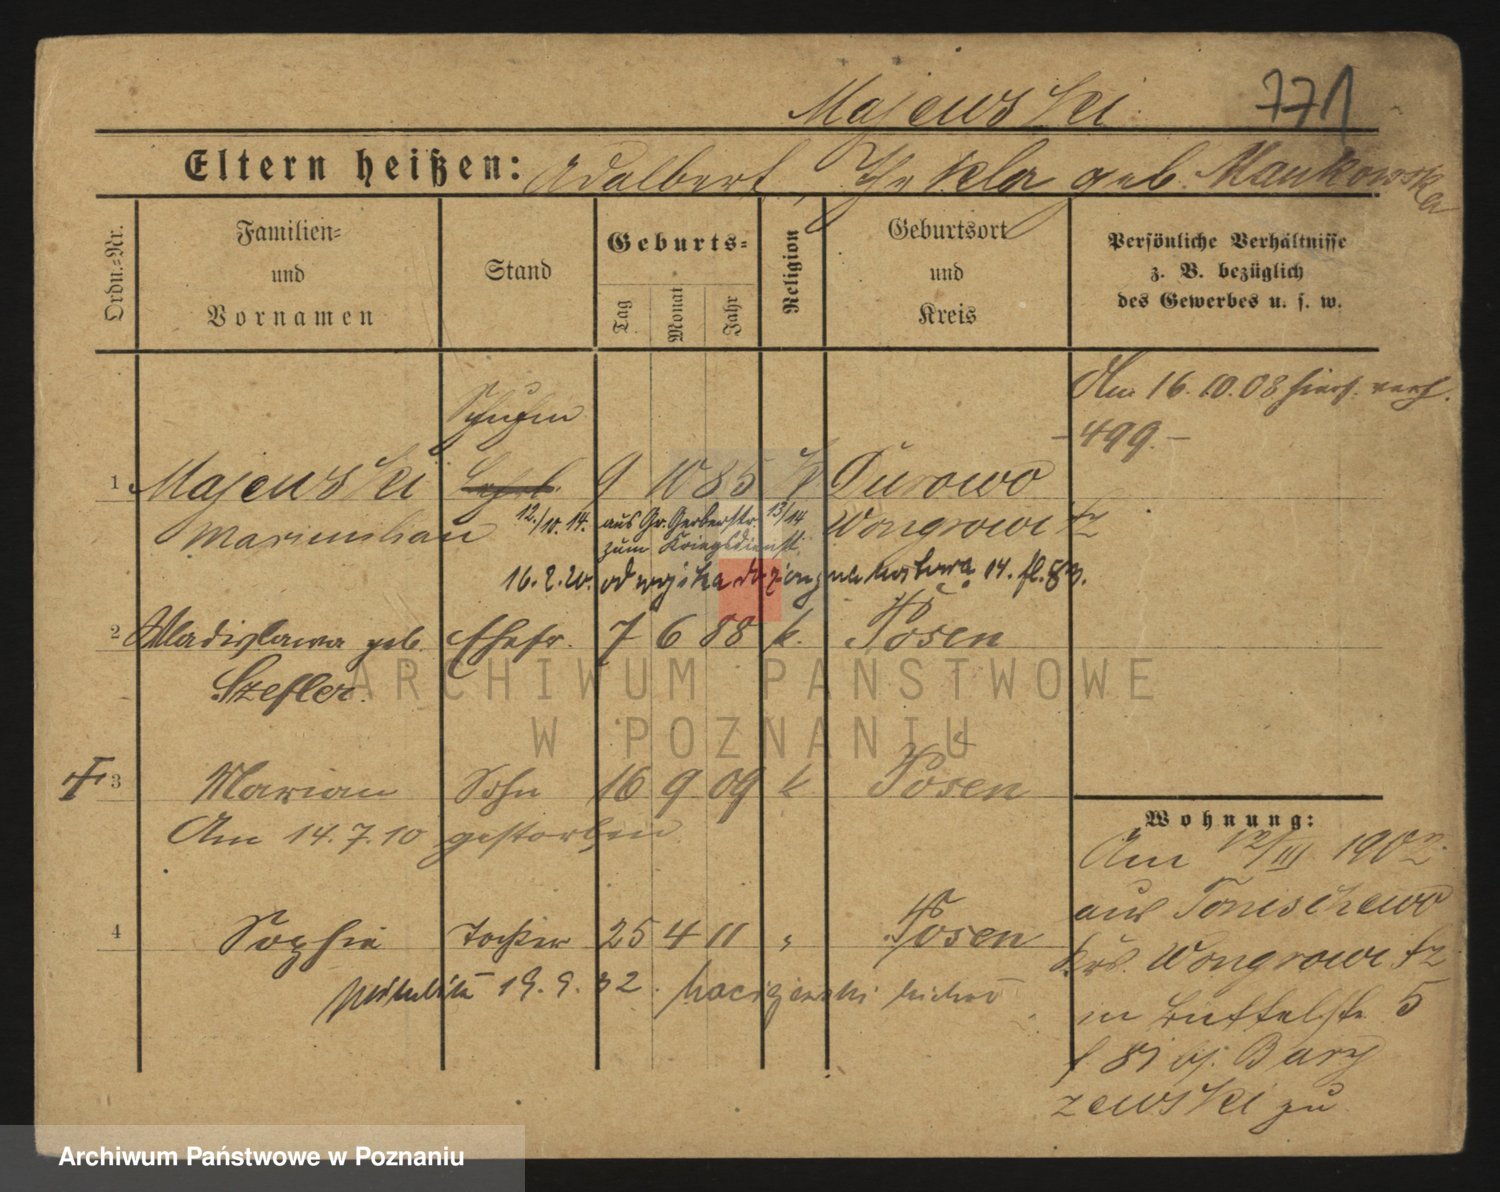 Majewski 771
Eltern heißen: Adalbert, Thekla geb. Mankowska
Ordn.-Nr.
Familien-
und
Vornamen
Stand
Geburts-
Tag
Monat
Jahr
Religion
Geburtsort
und
Kreis
Persönliche Verhältnisse
z. B. bezüglich
des Gewerbes u. s. w.
Am 16.10.08 hier verh.
- 499. -
1 Majewski 9 10 85 k Durowo
Maximilian Wongrowitz
12./10. 14. aus Gr. Gerberstr. 13/14
zum Kriegsdienst.
16. 2. 20. od wojska do
2 Wladislawa geb. Ehefr. 7 6 88 k. Posen
Szefler.
3 Marian Sohn 16 9 09 k Posen
Am 14.7.10 gestorben
4 Sophie Tochter 25 4 11 " Posen
19. 9. 32.
Wohnung:
Am 12/III 1902
aus Tonischewo
Krs. Wongrowitz
in 5
zewski zu
ARCHIWUM PAŃSTWOWE
W POZNANIU
Archiwum Państwowe w Poznaniu